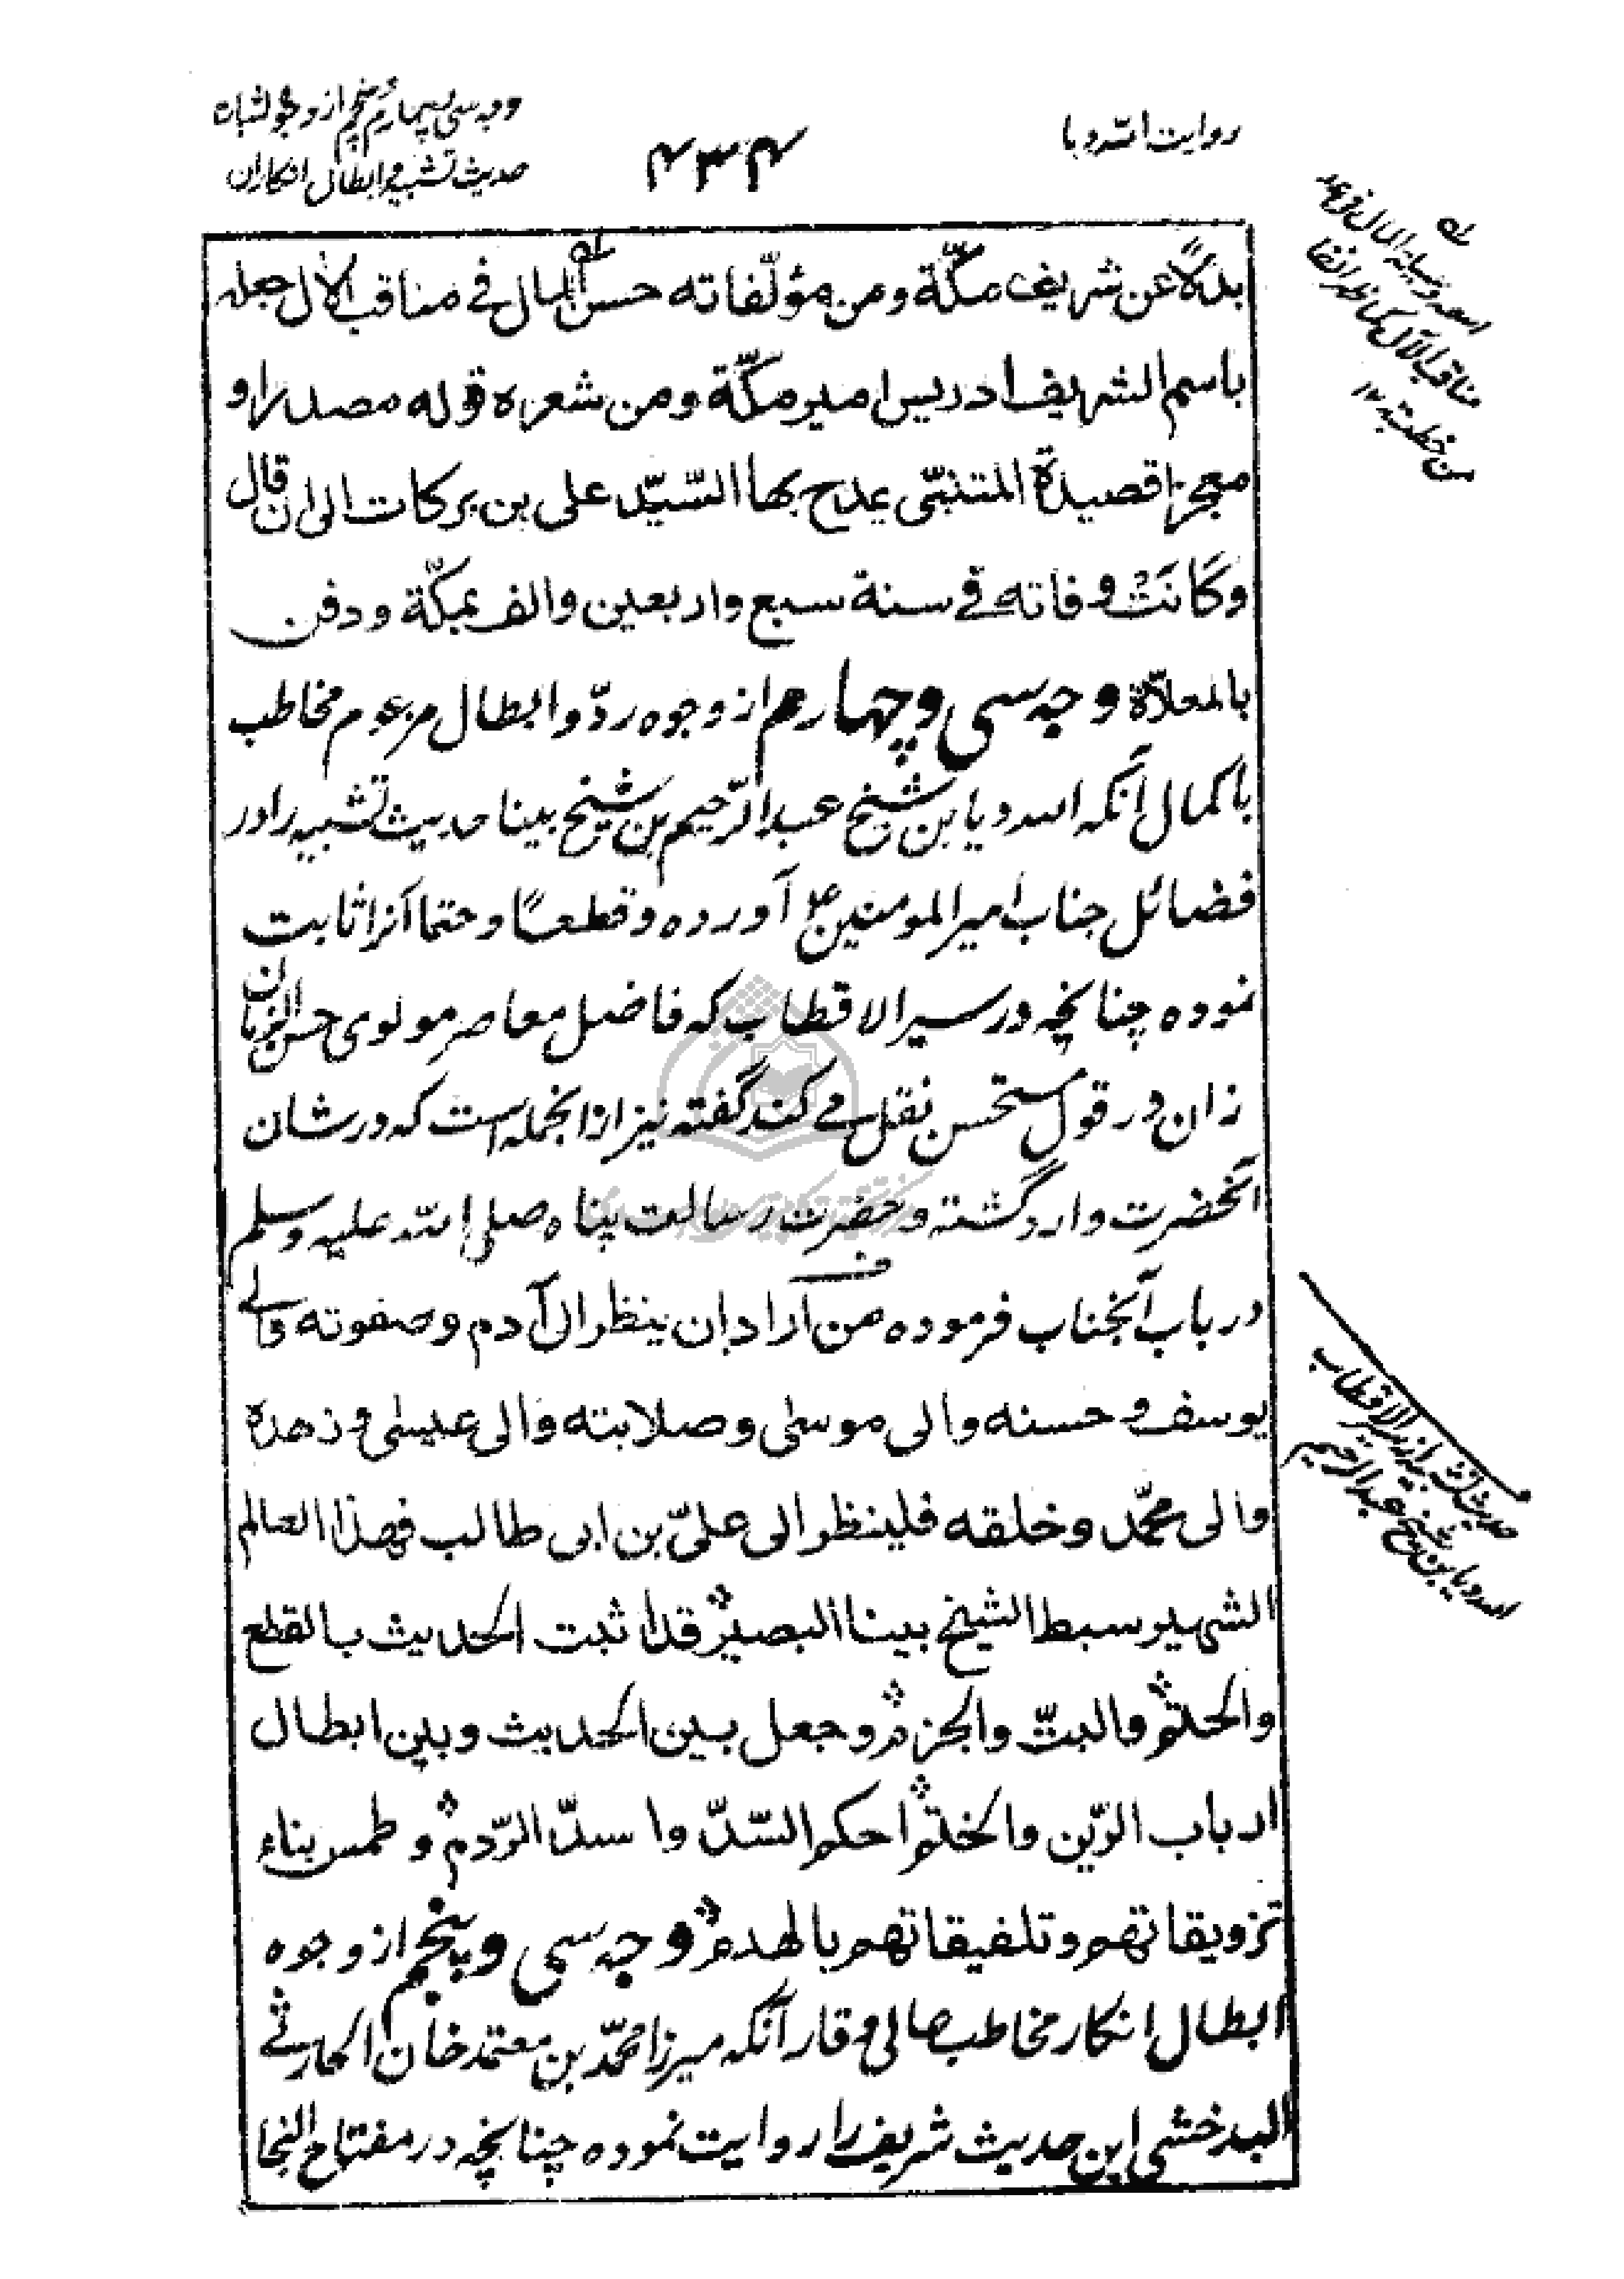 روایت اللہ دیا
۴۳۴
وجہ سی چہارم و پنجم از وجوہ اثبات
حدیث تشبیہ و ابطال انکار آن
بدلاً عن شریف مکّة ومن مؤلّفاته حسن المال فی مناقب الآل جعله
باسم الشریف ادریس امیر مکّة ومن شعره قوله مصدرا و
معجزا قصیدة المتنبّی یمدح بها السّیّد علی بن برکات الی ان قال
وکانت وفاته فی سنة سبع واربعین والف بمکّة ودفن
بالمعلاّة وجہ سی و چہارم از وجوہ ردّ و ابطال مزعوم مخاطب
باکمال آنکہ اللہ دیا بن شیخ عبد الرّحیم بن شیخ بینا حدیث تشبیہ را در
فضائل جناب امیر المومنین ع آوردہ و قطعًا و حتما آنرا ثابت
نمودہ چنانچہ در سیر الاقطاب کہ فاضل معاصر مولوی حسن الزمان
زان در قول مستحسن نقل می کند گفتہ نیز ازانجملہ است کہ در شان
آنحضرت وارد گشتہ و حضرت رسالت پناہ صلی اللہ علیہ وسلم
در باب آنجناب فرمودہ من اراد ان ینظر الی آدم وصفوته والی
یوسف وحسنه والی موسی وصلابته والی عیسی وزهده
والی محمّد وخلقه فلینظر الی علیّ بن ابی طالب فهذا العالم
الشهیر سبط الشیخ بینا البصیر قد اثبت الحدیث بالقطع
والحتم والبتّ والجزم وجعل بین الحدیث وبین ابطال
ارباب الرّین والختم احکم السّدّ واسدّ الرّدم وطمس بناء
تزویقاتهم وتلفیقاتهم بالهدم وجہ سی و پنجم از وجوہ
ابطال انکار مخاطب عالی وقار آنکہ میرزا محمّد بن معتمد خان الحارثی
البدخشی این حدیث شریف را روایت نمودہ چنانچہ در مفتاح النجا
مناقب الآل
من خطبته ۱۲
حدیث تشبیہ از سیر الاقطاب
اللہ دیا بن شیخ عبد الرحیم